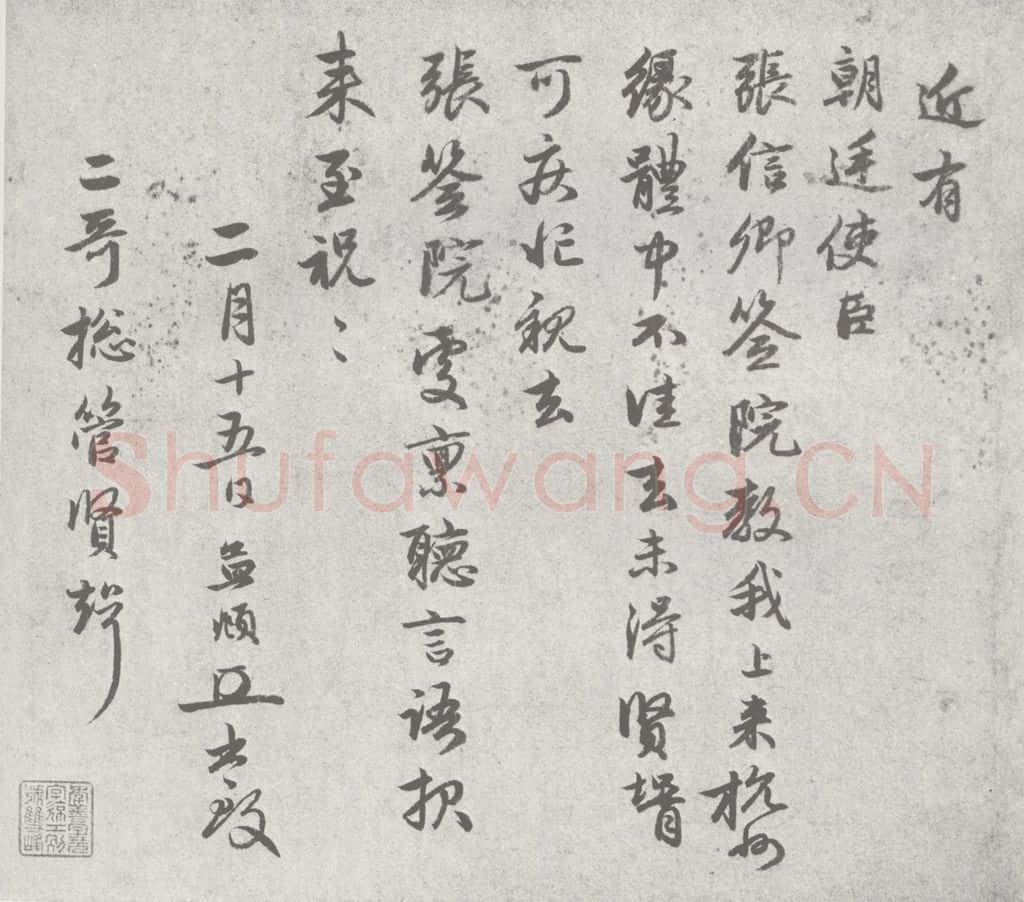 近有
朝廷使臣
張信卿簽院教我上来杭州
緣體中不佳去未得賢壻
可疾忙親去
張簽院處稟聽言語報
来至祝〻
二月十五日 孟頫 書致
二哥総管賢壻
Shufawang.CN